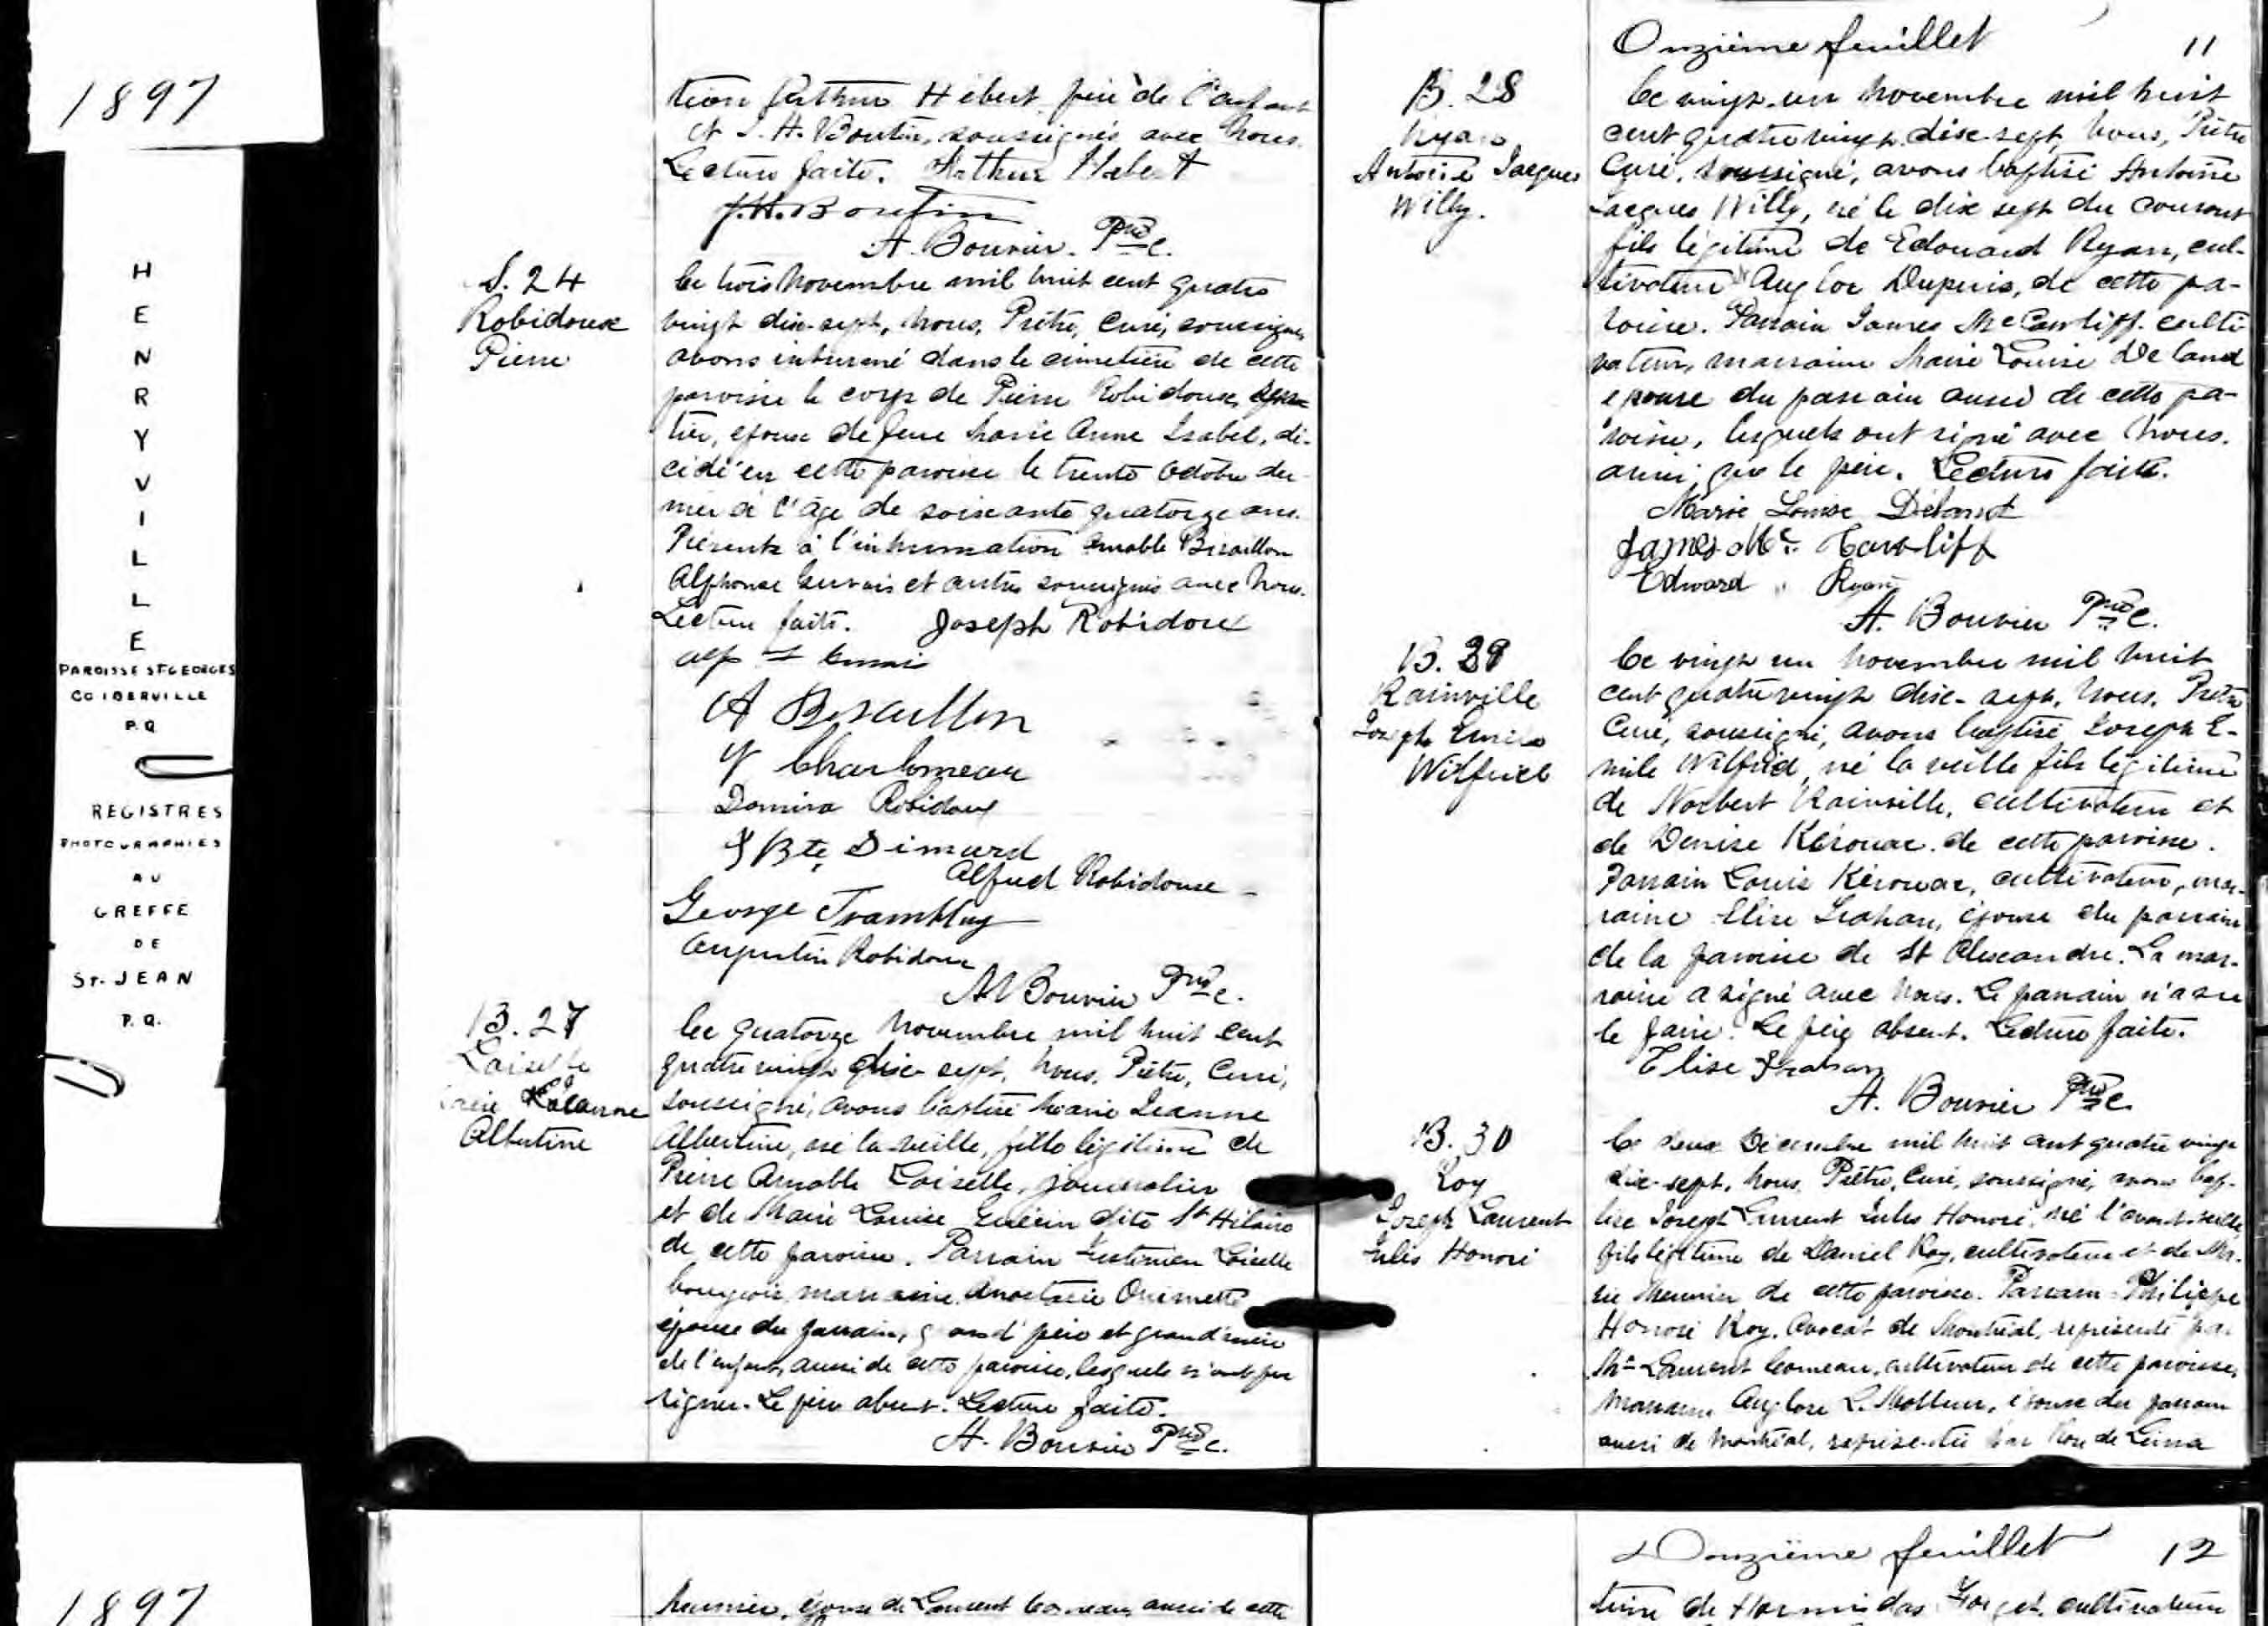 1897
HENRYVILLE
PAROISSE ST GEORGES
CO IBERVILLE
P.Q
REGISTRES
PHOTOGRAPHIES
AU
GREFFE
DE
ST. JEAN
P.Q.
1897
tion Arthur Hébert, père de l'enfant
et J. H. Boutin, soussignés avec nous.
Lecture faite. Arthur Hebert
J.H. Boutin
A. Bouvier Ptre C.
S. 24
Robidoux
Pierre
Ce trois Novembre mil huit cent quatre
vingt dix-sept, nous, Prêtre, Curé, soussigné,
avons inhumé dans le cimetière de cette
paroisse le corps de Pierre Robidoux,
époux de feue Marie Anne Isabel, dé-
cédé en cette paroisse le trente Octobre der-
nier à l'âge de soixante quatorze ans.
Présents à l'inhumation Amable Bisaillon
Alphonse Gervais et autres soussignés avec nous.
Lecture faite. Joseph Robidoux
A Bisaillon
Charboneau
Damira Robidoux
J Bte Simard
Alfred Robidoux
George Tramblay
Augustin Robidoux
A Bouvier Ptre C.
B. 27
Loiselle
Marie Jeanne
Albertine
Ce quatorze Novembre mil huit cent
quatre vingt dix-sept, nous, Prêtre, Curé,
soussigné, avons baptisé Marie Jeanne
Albertine, née la veille, fille légitime de
Pierre Amable Loiselle, journalier
et de Marie Louise Guérin dite St Hilaire
de cette paroisse. Parrain Loiselle
bourgeois, marraine Anastasie Ouimette
épouse du parrain, grand'père et grand'mère
de l'enfant, aussi de cette paroisse, lesquels n'ont pu
signer. Le père absent. Lecture faite.
A. Bouvier Ptre C.
Onzième feuillet 11
B. 28
Ryan
Antoine Jacques
Willy.
Ce vingt-un Novembre mil huit
cent quatre vingt dix-sept, nous, Prêtre
Curé, soussigné, avons baptisé Antoine
Jacques Willy, né le dix sept du courant
fils légitime de Edouard Ryan, cul-
tivateur Dupuis, de cette pa-
roisse. Parrain James McCawliff culti
vateur, marraine Marie Louise De land
épouse du parrain aussi de cette pa-
roisse, lesquels ont signé avec nous.
ainsi que le père. Lecture faite.
Marie Louise Déland
James Mc. Cawliff
Edward Ryan
A. Bouvier Ptre C.
B. 29
Rainville
Joseph Emile
Wilfrid
Ce vingt un Novembre mil huit
cent quatre vingt dix-sept, nous, Prêtre
Curé, soussigné, avons baptisé Joseph E-
mile Wilfrid, né la veille fils légitime
de Norbert Rainville, cultivateur et
de Denise Kérouac de cette paroisse.
Parrain Louis Kérouac, cultivateur, mar-
raine Elise Trahan, épouse du parrain
de la paroisse de St Alexandre. La mar-
raine a signé avec nous. Le parrain n'a su
le faire. Le père absent. Lecture faite.
Elise Trahan
A. Bouvier Ptre C.
B. 30
Roy
Joseph Laurent
Jules Honoré
Ce deux Décembre mil huit cent quatre vingt
dix-sept, nous, Prêtre, Curé, soussigné, avons bap-
tisé Joseph Laurent Jules Honoré, né l'avant-veille,
fils légitime de Daniel Roy, cultivateur et de Ma-
rie Meunier de cette paroisse. Parrain Philippe
Honoré Roy, Avocat de Montréal, représenté par
Mr Laurent Comeau, cultivateur de cette paroisse,
Marraine L. Molleur, épouse du parrain
aussi de Montréal, représentée par
Meunier, épouse de Laurent Comeau, aussi de cette
Douzième feuillet 12
time de Hormidas Forget, cultivateur